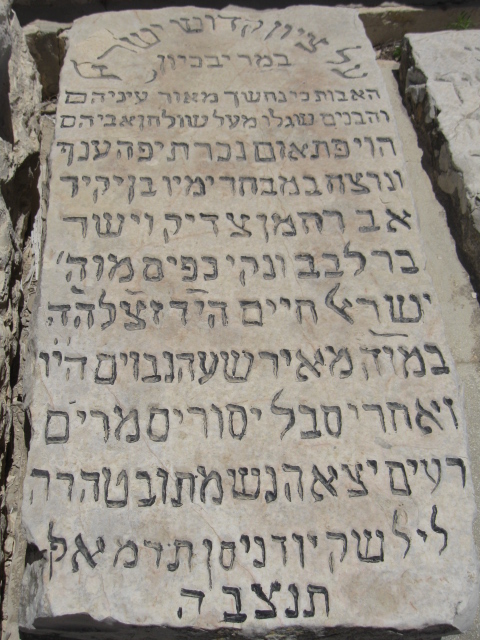 על ציון קדושי ישראל
במר יבכיון
האבות כי נחשך מאור עיניהם
והבנים שגלו מעל שולחן אביהם
הוי פתאום נכרת יפה ענף
ונרצח במבחר ימיו בן יקיר
אב רחמן צדיק וישר
בר לבב ונקי כפים מוה'
ישראל חיים היד זצלהה
במוה מאיר שעהנבוים היו
ואחרי סבל יסורים מרים
רעים יצאה נשמתו בטהרה
ליל שק יוד ניסן תדמ אלק
תנצבה